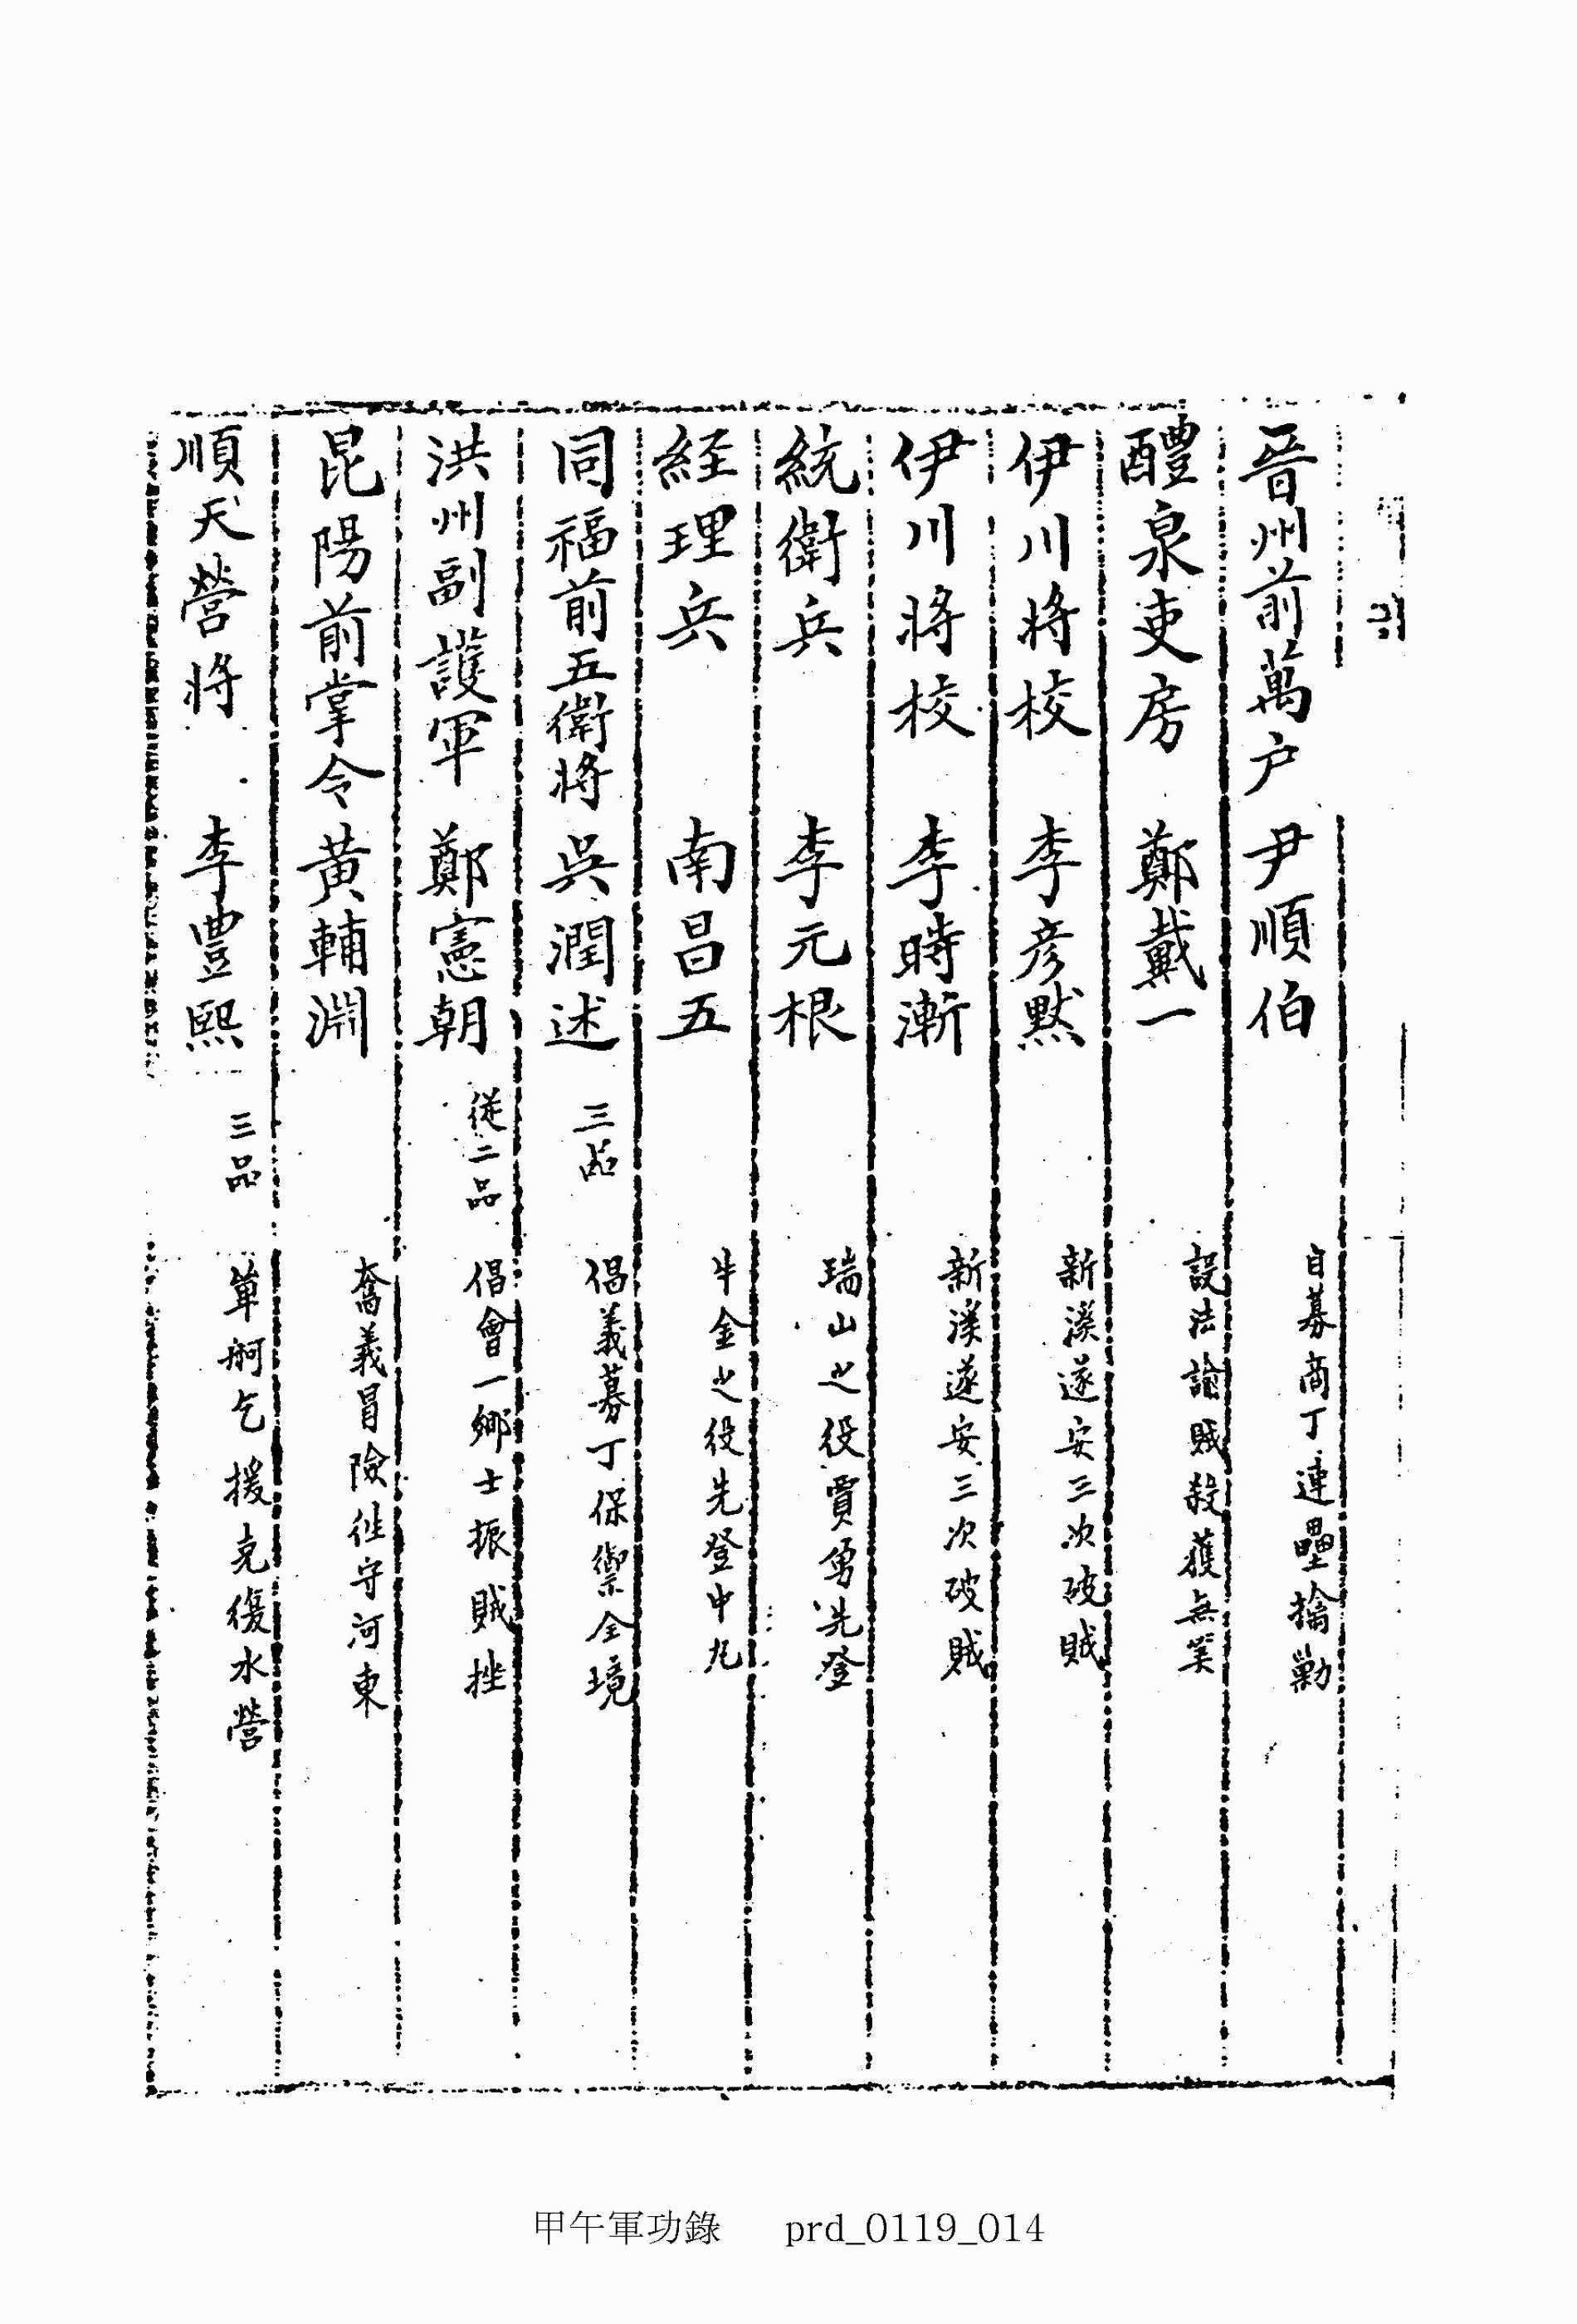 晉州前萬戶 尹順伯 自募商丁連壘擒勦
醴泉吏房 鄭戴一 設法諭賊殺獲無筭
伊川將校 李彦黙 新溪遂安三次破賊
伊川將校 李時漸 新溪遂安三次破賊
統衛兵 李元根 瑞山之役賈勇先登
経理兵 南昌五 牛金之役先登中丸
同福前五衛將 吳潤述 三品 倡義募丁保禦全境
洪州副護軍 鄭憲朝 從二品 倡會一鄉士振賊挫
昆陽前掌令 黃輔淵 奮義冒險往守河東
順天營將 李豊熙 三品 單舸乞援克復水營
甲午軍功錄 prd_0119_014